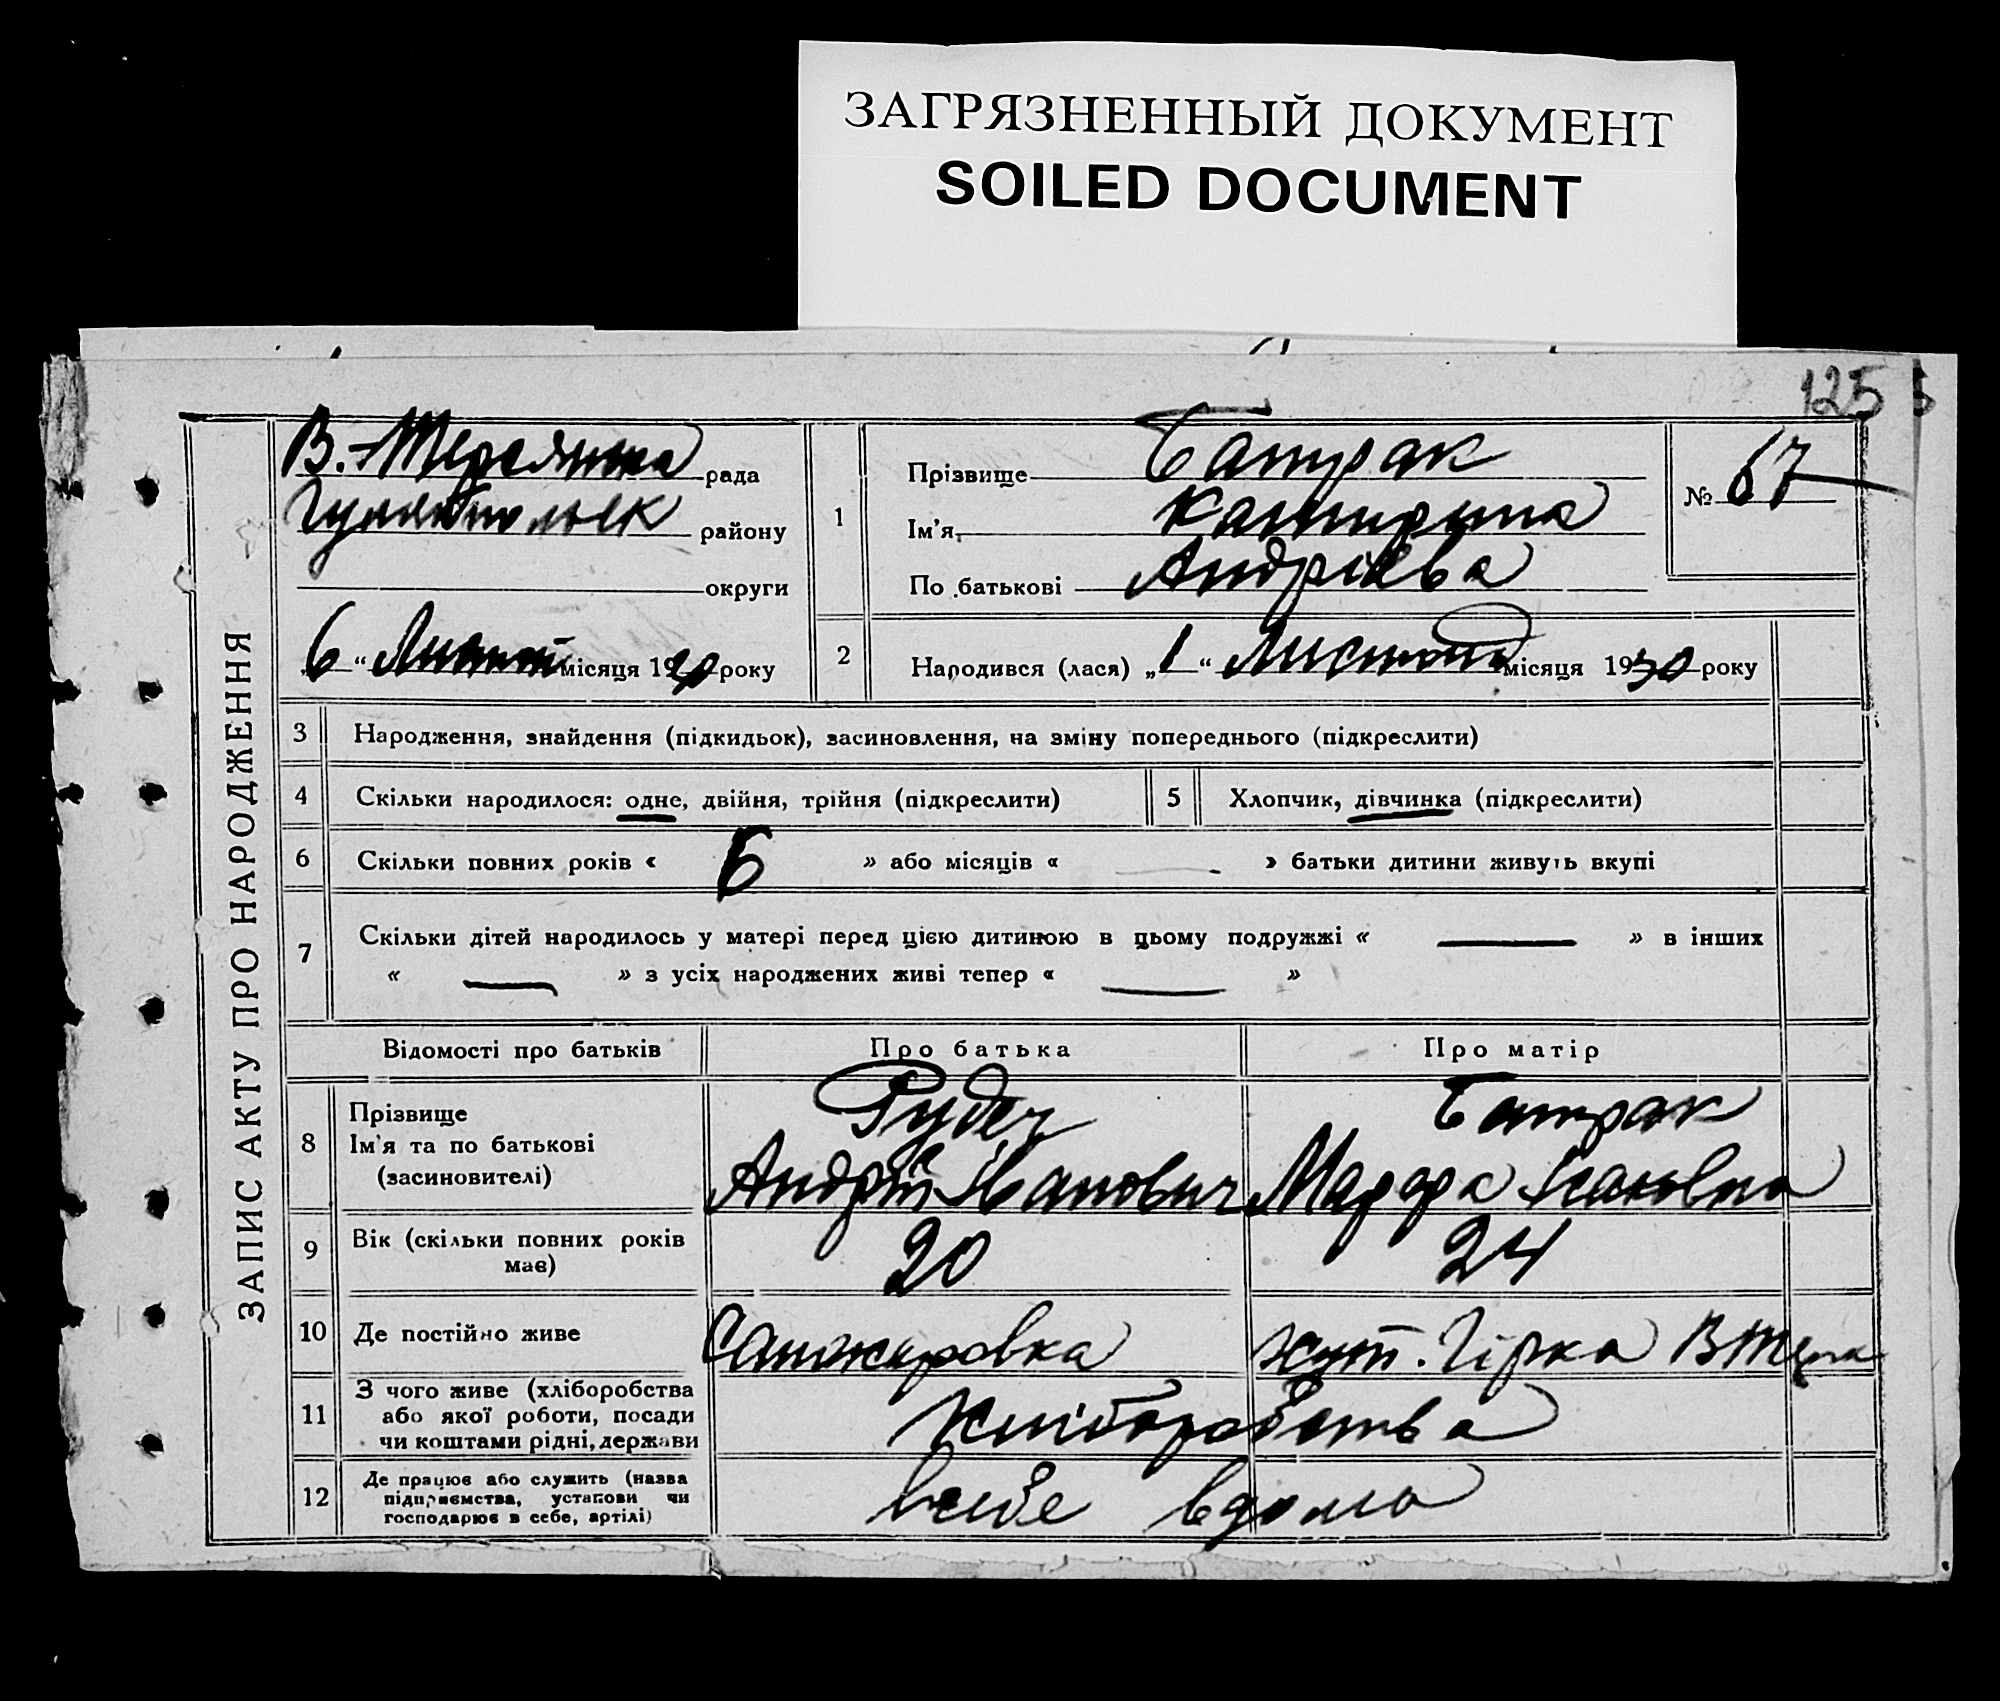 ЗАГРЯЗНЕННЫЙ ДОКУМЕНТ
SOILED DOCUMENT
125
ЗАПИС АКТУ ПРО НАРОДЖЕННЯ
рада
району
округи
6 “ місяця 1930 року
1
Прізвище Батрак
Ім’я Катирина
По батькові Андріева
№ 67
2
Народився (лася) „1“ Листопад місяця 1930 року
3 Народження, знайдення (підкидьок), засиновлення, на зміну попереднього (підкреслити)
4 Скільки народилося: одне, двійня, трійня (підкреслити)
5 Хлопчик, дівчинка (підкреслити)
6 Скільки повних років « » або місяців « — » батьки дитини живуть вкупі
7 Скільки дітей народилось у матері перед цією дитиною в цьому подружжі « — » в інших
« — » з усіх народжених живі тепер « — »
Відомості про батьків Про батька Про матір
8 Прізвище
Ім’я та по батькові
(засиновителі)
Батрак
Андрій Іванович
9 Вік (скільки повних років має)
20
24
10 Де постійно живе
хут. Гірка
11 З чого живе (хліборобства
або якої роботи, посади
чи коштами рідні, держави
Хліборобства
12 Де працює або служить (назва
підприємства, установи чи
господарює в себе, артілі)
вдома